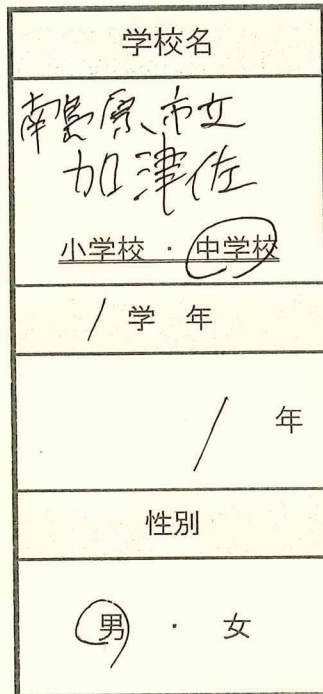 学校名
南島原市立
加津佐
小学校 ・ 中学校
1 学 年
1 年
性別
男 ・ 女